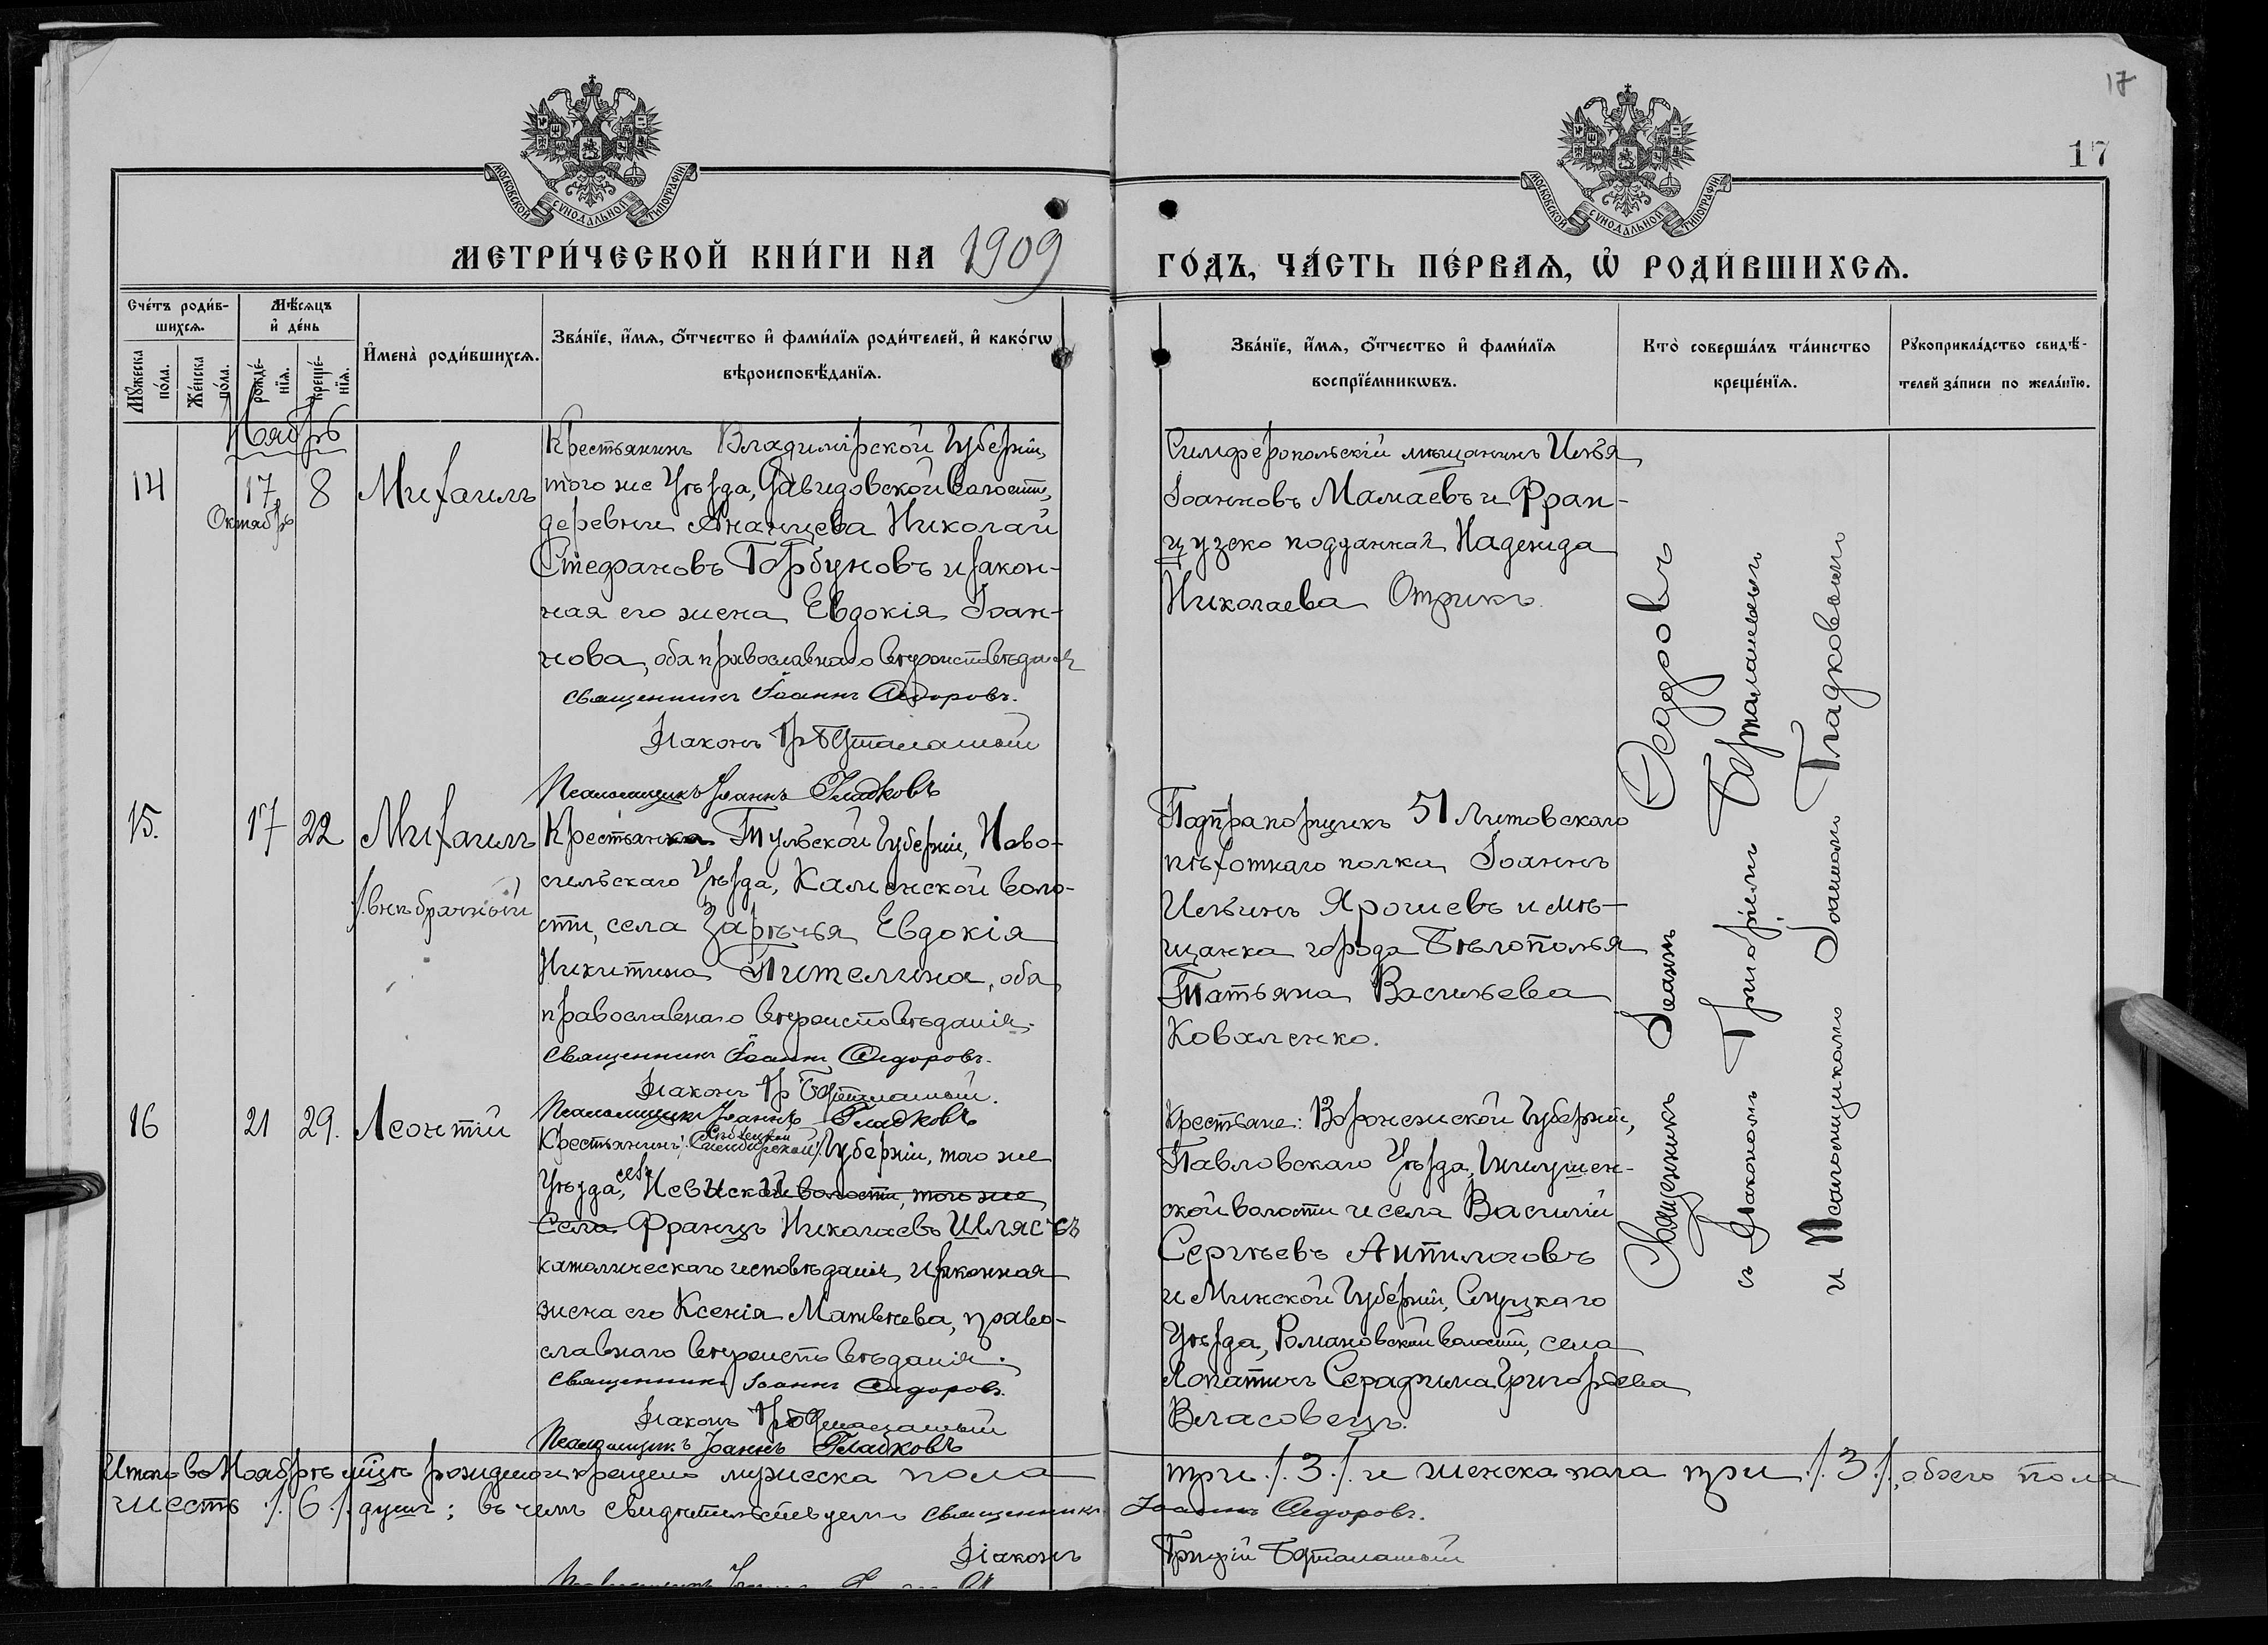 17
17
МОСКОВСКОЙ СѴНОДАЛЬНОЙ ТИПОГРАФІИ
МОСКОВСКОЙ СѴНОДАЛЬНОЙ ТИПОГРАФІИ
МЕТРИ́ЧЕСКОЙ КНИ́ГИ НА 1909
ГО́ДЪ, ЧА́СТЬ ПЕ́РВАѦ, Ѡ҆ РОДИ́ВШИХСѦ.
Сче́тъ роди́в-
шихсѧ.
Мꙋ́жеска по́ла.
Же́нска по́ла.
Мѣ́сѧцъ
и҆ де́нь
рожде́-
нїѧ.
креще́-
нїѧ.
И҆мена̀ роди́вшихсѧ.
Зва́нїе, и҆́мѧ, ѻ҆́тчество и҆ фами́лїѧ роди́телей, и҆ како́гѡ
вѣроисповѣ́данїѧ.
Зва́нїе, и҆́мѧ, ѻ҆́тчество и҆ фами́лїѧ
воспрїе́мникѡвъ.
Кто̀ соверша́лъ та́инство
креще́нїѧ.
Рꙋкоприкла́дство свидѣ́-
телей за́писи по жела́нїю.
Ноябрь
14 17 8 Михаилъ
Октябрь
Крестьянинъ Владимірской Губерніи,
того же Уѣзда, Давидовской волости,
деревни Ананцева Николай
Стефановъ Горбуновъ и закон-
ная его жена Евдокія Іоан-
нова, оба православнаго вѣроисповѣданія
Священникъ Іоаннъ Ѳедоровъ.
Діаконъ Гр Бурталашный
Псаломщикъ Іоаннъ Гладковъ
Симферопольскій мѣщанинъ Илья
Іоанновъ Мамаевъ и Фран-
цузско подданная Надежда
Николаева Отрикъ.
15. 17 22 Михаилъ
/внѣбрачный/
Крестьянка Тульской Губерніи, Ново-
сильскаго Уѣзда, Каменской воло-
сти, села Зарѣчья Евдокія
Никитина Пителина, оба
православнаго вѣроисповѣданія.
Священникъ Іоаннъ Ѳедоровъ.
Діаконъ Гр Бурталашный.
Псаломщикъ Іоаннъ Гладковъ
Подпрапорщикъ 51 Литовскаго
пѣхотнаго полка Іоаннъ
Ильинъ Ярошевъ и мѣ-
щанка города Бѣлополья
Татьяна Васильева
Коваленко.
16 21 29. Леонтій
Крестьянинъ Губерніи, того же
Уѣзда, волости, того же
села Францъ Николаевъ
католическаго исповѣданія, и законная
жена его Ксенія Матвѣева, право-
славнаго вѣроисповѣданія.
Священникъ Іоаннъ Ѳедоровъ.
Діаконъ Гр Бурталашный
Псаломщикъ Іоаннъ Гладковъ
Крестьяне: Воронежской Губерніи,
Павловскаго Уѣзда,
ской волости и села Василій
Сергѣевъ Антилоговъ
и Минской Губерніи, Слуцкаго
Уѣзда, Романовской волости, села
Лопатичъ Серафима Григорьева
Власовецъ.
Священникъ Іоаннъ Ѳеодоровъ
съ Діакономъ Григоріемъ Бурталашнымъ
и Псаломщикомъ Іоанномъ Гладковымъ
Итого во Ноябрѣ мѣсцѣ рождено и крещено мужеска пола три ./3./. и женска пола три ./3./. обоего пола
шесть ./6/. душъ; въ чемъ свидѣтельствуемъ Священникъ Іоаннъ Ѳедоровъ.
Діаконъ Григорій Бурталашный